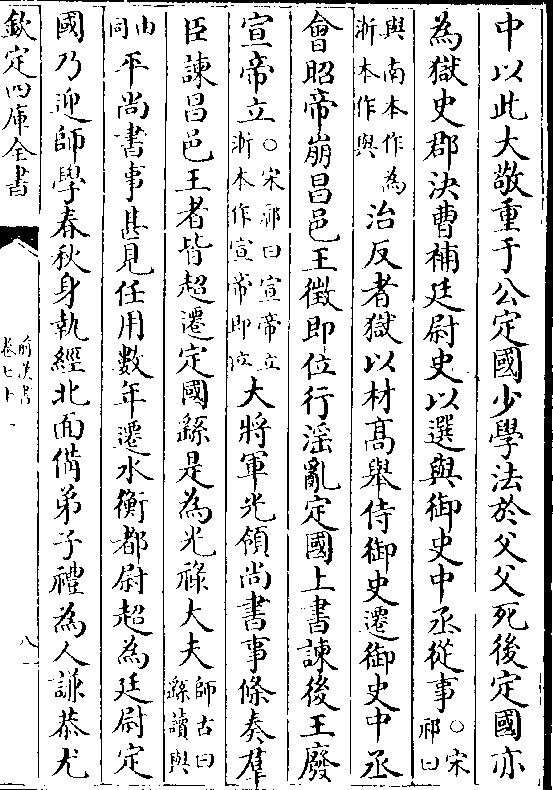 中以此大敬重于公定國少學法於父父死後定國亦
為獄史郡決曹補廷尉史以選與御史中丞從事○宋祁曰
與南本作為浙本作與治反者獄以材髙舉侍御史遷御史中丞
會昭帝崩昌邑王徵即位行淫亂定國上書諫後王廢
宣帝立○宋祁曰宣帝立浙本作宣帝即位大將軍光領尚書事條奏羣
臣諫昌邑王者皆超遷定國繇是為光祿大夫師古曰繇讀與
由同平尚書事甚見任用數年遷水衡都尉超為廷尉定
國乃迎師學春秋身執經北面備弟子禮為人謙恭尤
欽定四庫全書
前漢書
卷七十一
八